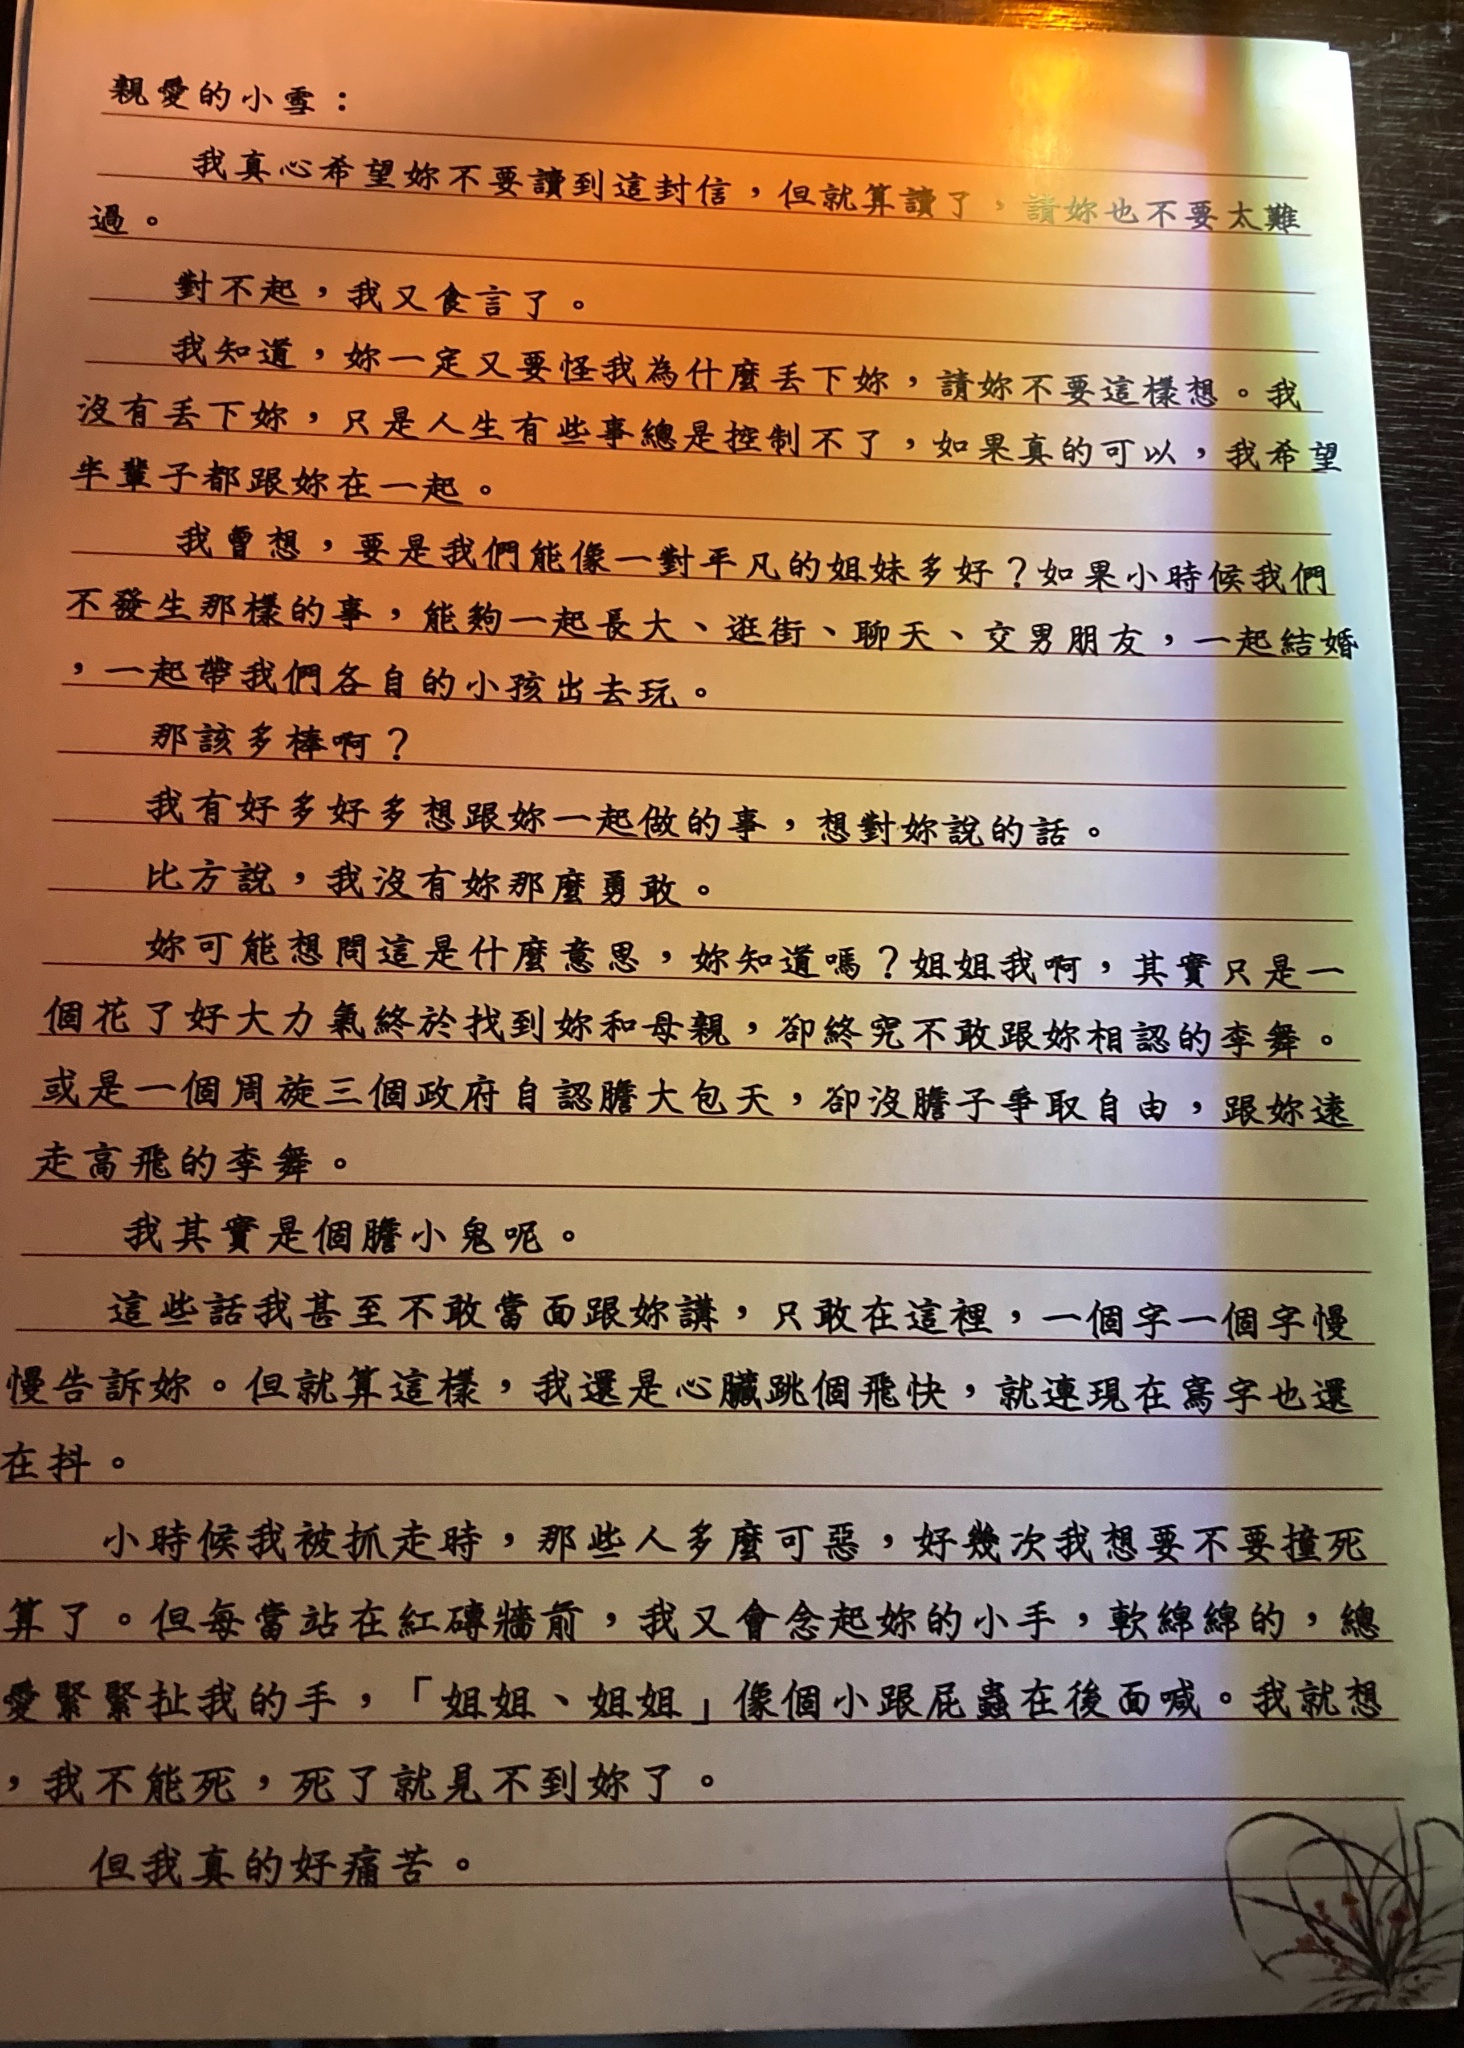 親愛的小雪：
我真心希望妳不要讀到這封信，但就算讀了，請妳也不要太難
過。
對不起，我又食言了。
我知道，妳一定又要怪我為什麼丟下妳，請妳不要這樣想。我
沒有丟下妳，只是人生有些事總是控制不了，如果真的可以，我希望
半輩子都跟妳在一起。
我曾想，要是我們能像一對平凡的姐妹多好？如果小時候我們
不發生那樣的事，能夠一起長大、逛街、聊天、交男朋友，一起結婚
，一起帶我們各自的小孩出去玩。
那該多棒啊？
我有好多好多想跟妳一起做的事，想對妳說的話。
比方說，我沒有妳那麼勇敢。
妳可能想問這是什麼意思，妳知道嗎？姐姐我啊，其實只是一
個花了好大力氣終於找到妳和母親，卻終究不敢跟妳相認的李舞。
或是一個周旋三個政府自認膽大包天，卻沒膽子爭取自由，跟妳遠
走高飛的李舞。
我其實是個膽小鬼呢。
這些話我甚至不敢當面跟妳講，只敢在這裡，一個字一個字慢
慢告訴妳。但就算這樣，我還是心臟跳個飛快，就連現在寫字也還
在抖。
小時候我被抓走時，那些人多麼可惡，好幾次我想要不要撞死
算了。但每當站在紅磚牆前，我又會念起妳的小手，軟綿綿的，總
愛緊緊扯我的手，「姐姐、姐姐」像個小跟屁蟲在後面喊。我就想
，我不能死，死了就見不到妳了。
但我真的好痛苦。